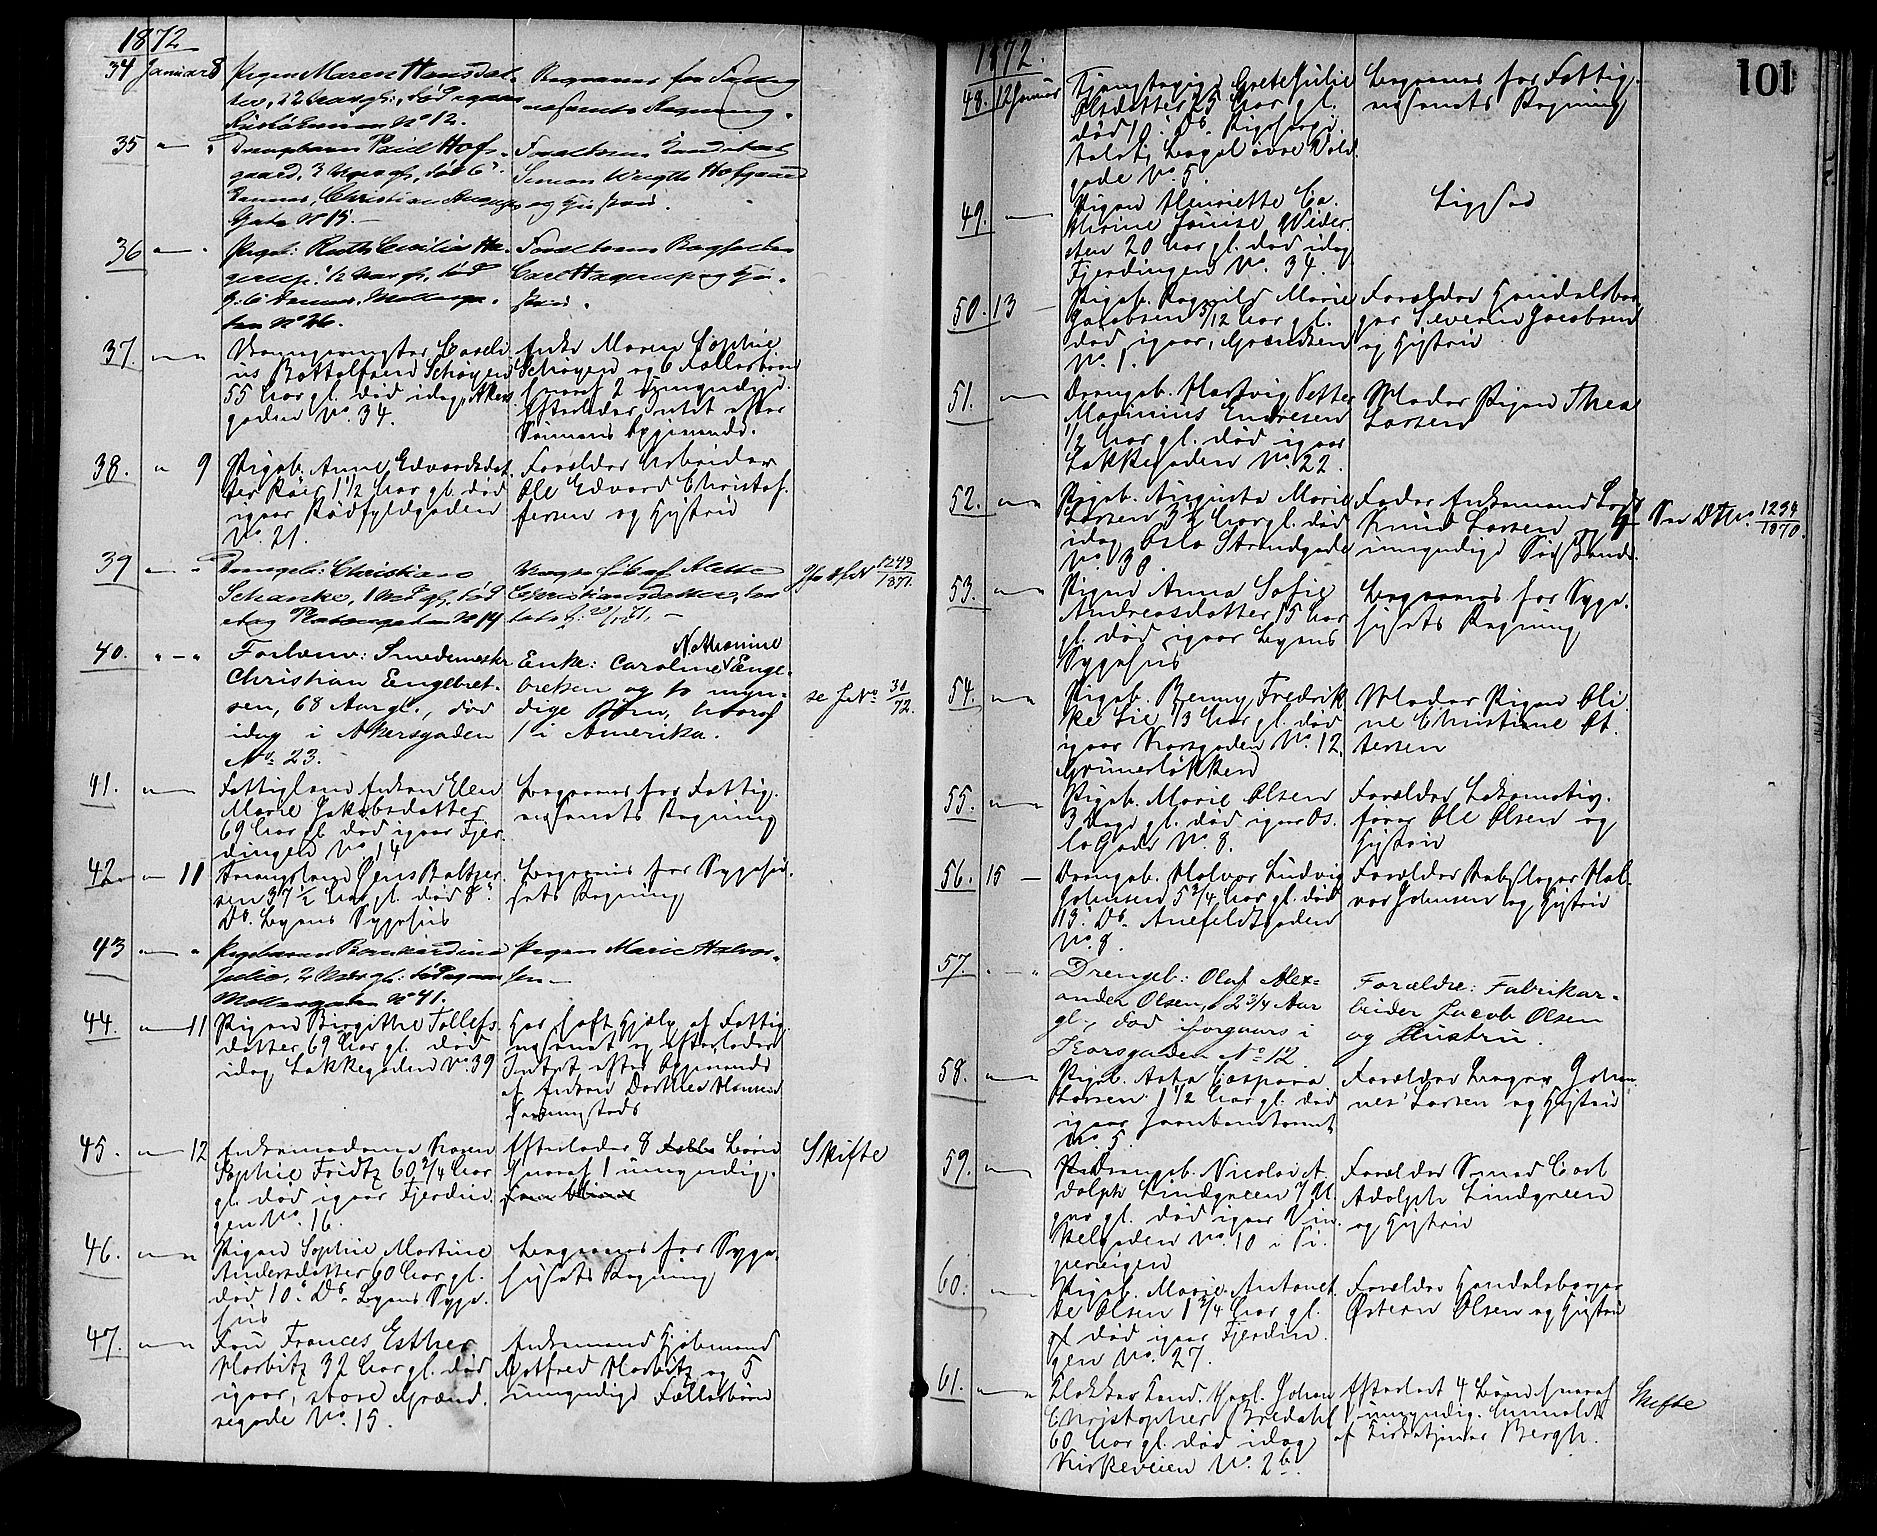 1872
34 Januar 8 Pigen Maren Hansdat-
ter, 22 Aar gl., død igaar
No 12.
Begraves for Fattig-
væsenets Regning.
35 Drengebarn Paul Hof-
gaard, 3 gl., død 6te
Januar, Christian
Gade No 15
Forældrene
Simon Hofgaard
og Hustru.
36 Pigeb: Ruth Cecilia Ha-
gerup, 1/2 Aar gl., død
6 Januar, Mollerga-
ten No 26.
Forældrene
Carl Hagerup og Hu-
stru.
37. Caroli-
us Bottolfsen Schøyen
55 Aar gl. død idag, Akers-
gaden No. 34.
Enke Maren Sophie
Schøyen og 6 Fællesbørn
hvoraf 2 umyndige.
Efterlader Intet efter
Sønnens Opgivende.
38. " 9 Pigeb. Anne Edvardsdat-
ter 1 1/2 Aar gl. død
igaar Rødfyldgaden
No. 21.
Forældre Arbeider
Ole Edvard Christof-
fersen og Hustru
39 Drengeb: Christian
Schanke, 1 Md gl., død
idag No 14
af Mette
Christiansdatter,
1249
1871.
40. Forhenv: Smedemester
Christian Engebret-
sen, 68 Aar gl., død
idag i Akersgaden
No 23.
Enke: Caroline Nathionine Enge-
bretsen og to myn-
dige Børn, hvoraf
1 i Amerika.
se No 31
72.
41. Fattiglem Enken Elen
Marie Jakobsdatter
69 Aar gl. død igaar Fjer-
dingen No 14
Begraves for Fattig-
væsenets Regning
42 — 11 Jens Baltzer-
sen 37 1/2 Aar gl. død 8de
Ds. Byens Sygehus
Begraves for Sygehu-
sets Regning
43 Pigebarn Bernhardine
Julie, 2 gl: død igaar
Møllergaten No 41.
Pigen Marie Halvor-
sen
44. — 11 Pigen Birgithe Tollefs-
datter 69 Aar gl. død
idag Lakkegaden No. 39
Har haft Hjælp af Fattig-
væsenet og efterlader
Intet efter Opgivende
af Enken Dorthea Hansen
45. — 12 Enkemadame Karen
Sophie Fridtz 60 3/4 Aar
gl. død igaar Fjerdin-
gen No. 16.
Efterlader 8 Børn
hvoraf 1 umyndig.
Skifte
46. Pigen Sophie Martine
Andersdatter 60 Aar gl.
død 10de Ds. Byens Syge-
hus
Begraves for Syge-
husets Regning
47. Fru Frances Esther
Morbitz 32 Aar gl. død
igaar, store Grænd-
segade No. 15.
Enkemand Kjøbmand
Gotfred Morbitz og 5
umyndige Fællesbørn
1872.
101
48. 12 Januar Tjenestepige Grethe Julie
Olsdatter 25 Aar gl.
død 10de Ds.
øvre Vold-
gade No 5.
Begraves for Fattig-
væsenets Regning
49. Pigen Henriette Ca-
thrine Louise Wider-
sten 20 Aar gl. død idag
Fjerdingen No. 34.
50. 13 Pigeb. Ragnild Marie
Jacobsen 5/12 Aar gl.
død igaar, Grændsen
No 1.
Forældre Handelsbor-
ger Severin Jacobsen
og Hustru
51. Drengeb. Hartvig Petter
Marinius Endresen
1/2 Aar gl. død igaar
Lakkegaden No. 22.
Moder Pigen Thea
Larsen
52. Pigeb. Augusta Marie
Larsen 3 1/2 Aar gl. død
idag Oslo Strandgade
No 30.
Fader Enkemand
Knud Larsen og 4
umyndige Sødskende.
1234
1870.
53. Pigen Anna Sofie
Andreasdatter 15 Aar
gl. død igaar Byens
Sygehus
Begraves for Syge-
husets Regning
54. Pigeb. Benny Fredrik-
ke Lie 13 Aar gl. død
igaar Korsgaden No. 12.
Grünerløkken
Moder Pigen Oli-
ne Christiane Pet-
tersen
55. Pigeb. Marie Olsen
3 Dage gl. død igaar Os-
lo Gade No. 8.
Forældre Lokomotiv-
fører Ole Olsen og
Hustru
56. 15 Drengeb. Halvor Ludvig
Johnsen 5 3/4 Aar gl. død
13. Ds. Anefeldtgaden
No. 8.
Forældre Rebslager Hal-
vor Johnsen og Hustru
57. Drengeb: Olaf Alex-
ander Olsen, 2 3/4 Aar
gl., død iforgaars i
Korsgaden No 12
Forældre: Fabrikar-
beider Jacob Olsen
og Hustru.
58. Pigeb. Asta Caspara
Larsen 1 1/2 Aar gl. død
igaar Jernbanetorvet
No. 5.
Forældre Bager Johan-
nes Larsen og Hustru
59. Drengeb. Nicolai A-
dolph Lindgreen 7 U-
ger gl. død igaar Vin-
kelgaden No. 10 i Pi-
pervigen
Forældre Smed Carl
Adolph Lindgreen
og Hustru
60. Pigeb. Marie Antonet-
te Olsen 1 3/4 Aar gl.
gl død igaar Fjerdin-
gen No. 27.
Forældre Handelsborger
Østern Olsen og Hustru
61. Klokker Cand. Johan
Christopher Bredahl
60 Aar gl. død idag
Kirkeveien No. 2b.
Efterladt 4 Børn hvoraf
1 umyndig. Anmeldt
af Kirketjener Bergh.
Skifte